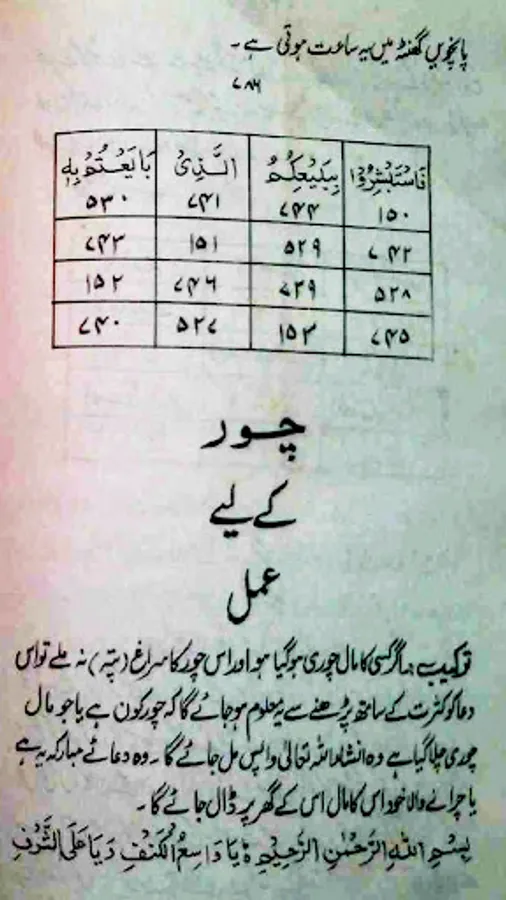 پانچویں گھنٹہ میں یہ ساعت ہوتی ہے۔
۷۸۶
فَاسْتَبْشِرُوْا بِبَيْعِكُمُ الَّذِىْ بَايَعْتُمْ بِهٖ
۱۵۰ ۷۴۴ ۷۴۱ ۵۳۰
۷۴۲ ۵۲۹ ۱۵۱ ۷۴۳
۵۲۸ ۷۳۹ ۷۴۶ ۱۵۲
۷۴۵ ۱۵۳ ۵۲۷ ۷۴۰
چور
کے لیے
عمل
ترکیب: اگر کسی کا مال چوری ہو گیا ہو اور اس چور کا سراغ (پتہ) نہ ملے تو اس
دعا کو کثرت کے ساتھ پڑھنے سے یہ معلوم ہو جائے گا کہ چور کون ہے یا جو مال
چوری چلا گیا ہے وہ انشاء اللہ تعالیٰ واپس مل جائے گا۔ وہ دعائے مبارکہ یہ ہے
یا چرانے والا خود اس کا مال اس کے گھر پر ڈال جائے گا۔
بِسْمِ اللهِ الرَّحْمٰنِ الرَّحِيْمِ ۃ يَا وَاسِعُ الْكَنَفِ وَيَا عَلَى الشَّرَفِ